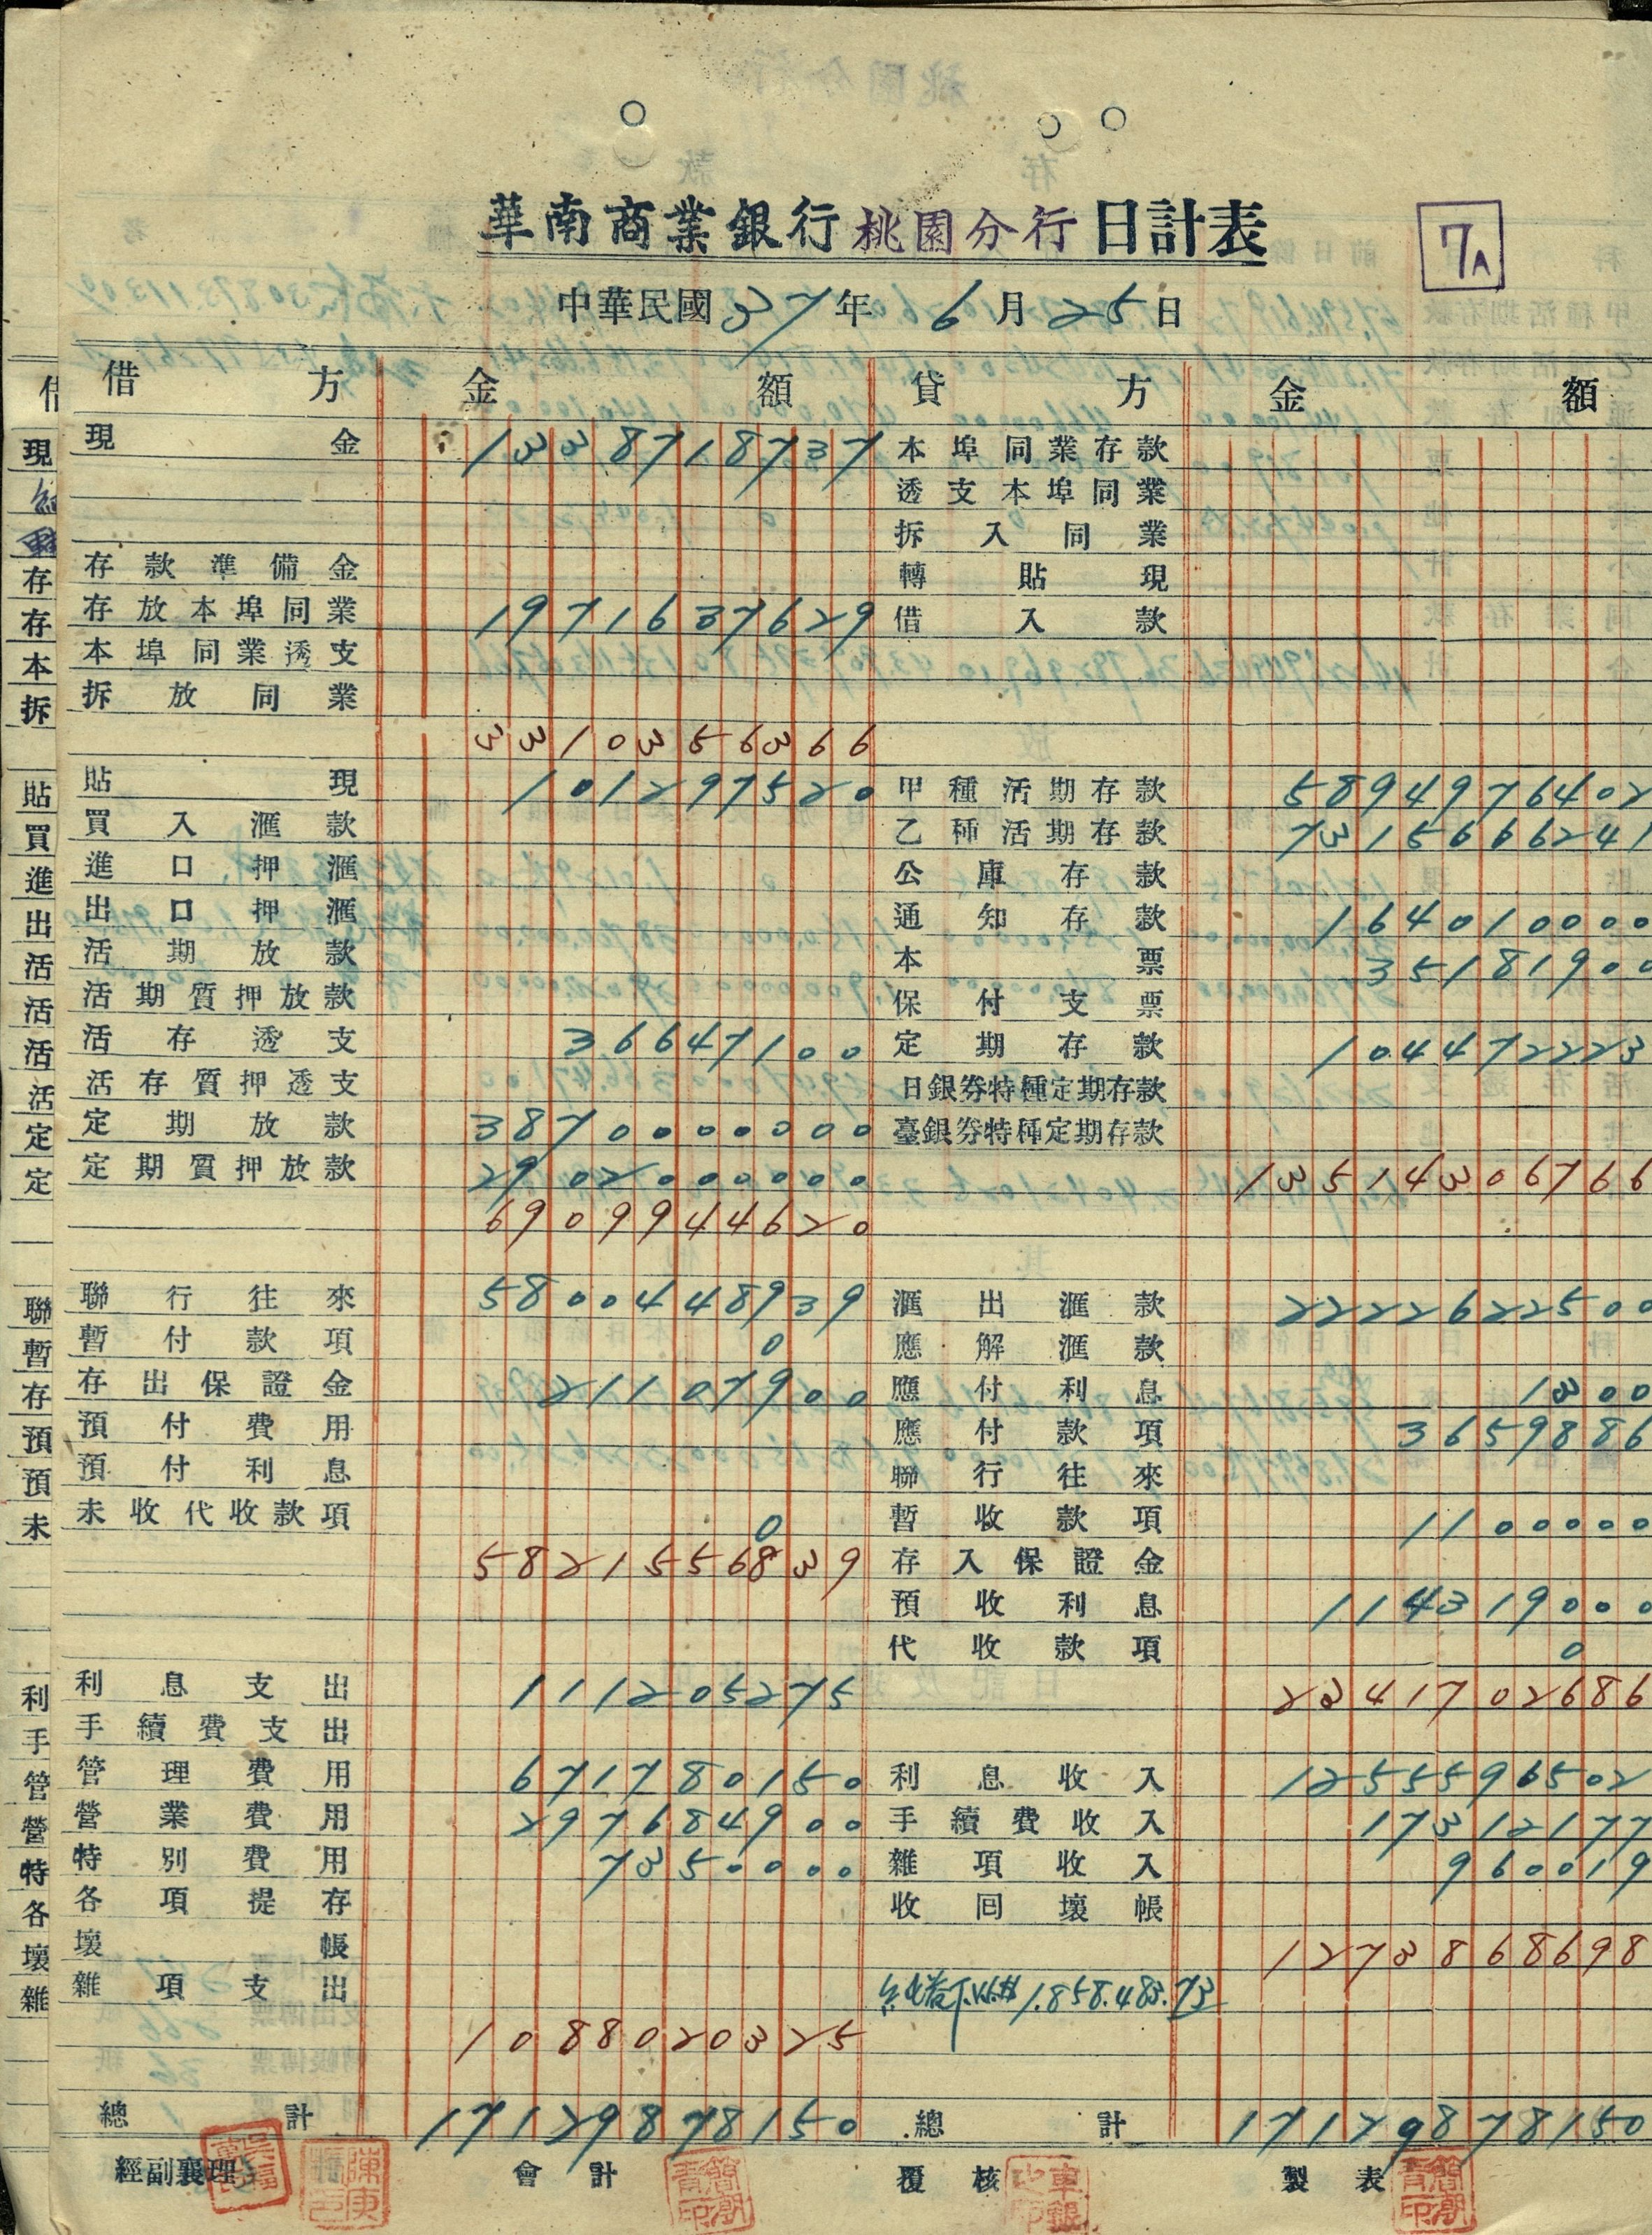 華南商業銀行桃園分行日計表
7A
中華民國37年6月25日
借方 金額 貸方 金額
現金 1338718737 本埠同業存款
透支本埠同業
拆入同業
存款準備金 轉貼現
存放本埠同業 1971637629 借入款
本埠同業透支
拆放同業
3310356366
貼現 101297520 甲種活期存款 5894976402
買入滙款 乙種活期存款 7315666241
進口押滙 公庫存款
出口押滙 通知存款 164010000
活期放款 本票 35181900
活期質押放款 保付支票
活存透支 36647100 定期存款 104472223
活存質押透支 日銀券特種定期存款
定期放款 3870000000 臺銀券特種定期存款
定期質押放款 2902000000 13514306766
6909944620
聯行往來 5800448939 滙出滙款 2222622500
暫付款項 0 應解滙款
存出保證金 21107900 應付利息 1300
預付費用 應付款項 3659886
預付利息 聯行往來
未收代收款項 0 暫收款項 1100000
5821556839 存入保證金
預收利息 114319000
代收款項 0
利息支出 111205275 2341702686
手續費支出
管理費用 671780150 利息收入 1255596502
營業費用 297684900 手續費收入 17312177
特別費用 7350000 雜項收入 960019
各項提存 收回壞帳
壞帳 1273868698
雜項支出 純益 1.858.483.73
1088020325
總計 17129878150 總計 17129878150
經副襄理 會計 覆核 製表